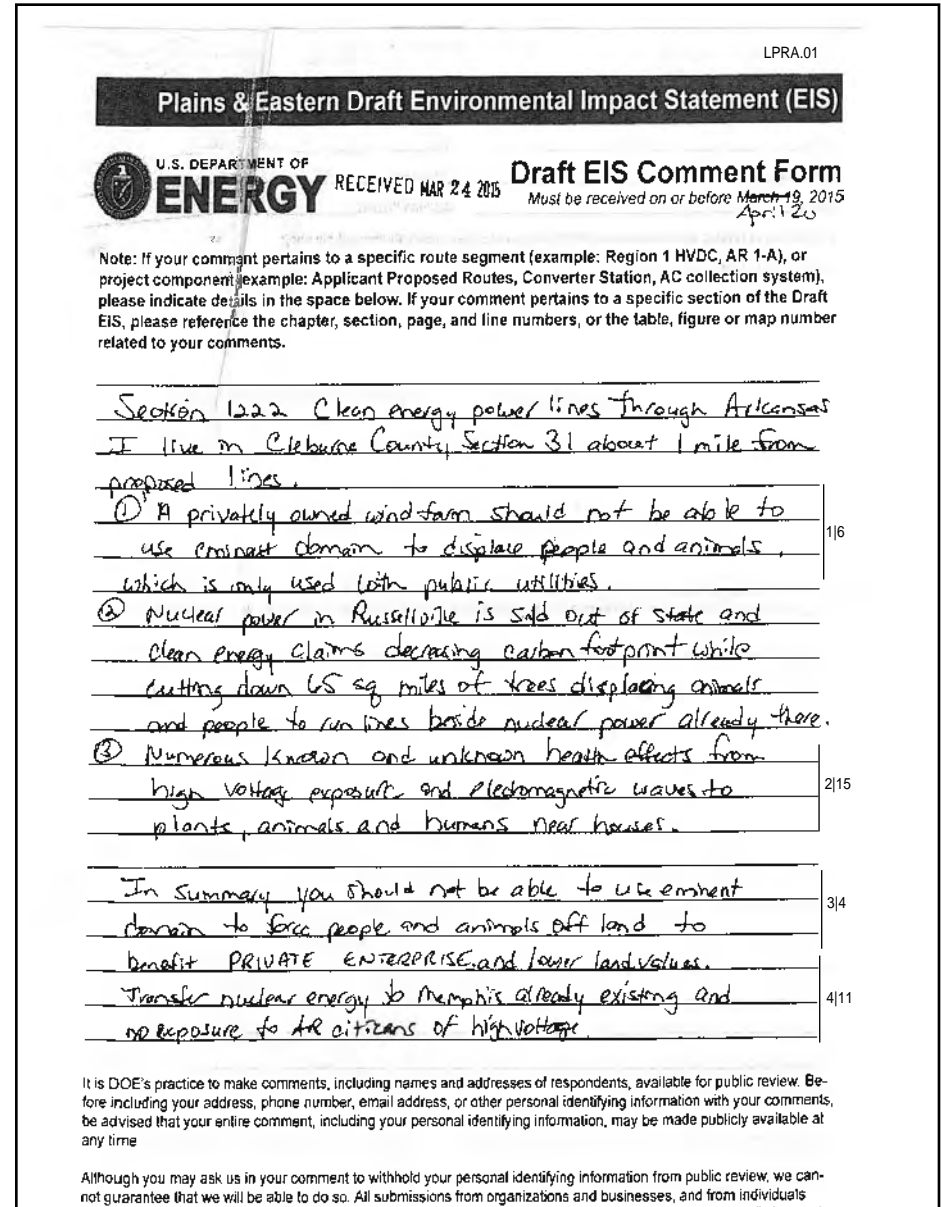 LPRA.01
Plains & Eastern Draft Environmental Impact Statement (EIS)
U.S. DEPARTMENT OF
ENERGY
RECEIVED MAR 24 2015
Draft EIS Comment Form
Must be received on or before March 19, 2015
April 20
Note: If your comment pertains to a specific route segment (example: Region 1 HVDC, AR 1-A), or
project component (example: Applicant Proposed Routes, Converter Station, AC collection system),
please indicate details in the space below. If your comment pertains to a specific section of the Draft
EIS, please reference the chapter, section, page, and line numbers, or the table, figure or map number
related to your comments.
Section 1222 Clean energy power lines through Arkansas
I live in Cleburne County Section 31 about 1 mile from
proposed lines.
① A privately owned wind farm should not be able to
1|6
use eminent domain to displace people and animals,
which is only used with public utilities.
② Nuclear power in Russellville is sold out of state and
clean energy claims decreasing carbon footprint while
cutting down 65 sq miles of trees displacing animals
and people to run lines beside nuclear power already there.
③ Numerous known and unknown health effects from
high voltage exposure and electromagnetic waves to
2|15
plants, animals and humans near houses.
In summary you should not be able to use eminent
3|4
domain to force people and animals off land to
benefit PRIVATE ENTERPRISE and lower land values.
Transfer nuclear energy to Memphis already existing and
4|11
no exposure to AR citizens of high voltage
It is DOE's practice to make comments, including names and addresses of respondents, available for public review. Be-
fore including your address, phone number, email address, or other personal identifying information with your comments,
be advised that your entire comment, including your personal identifying information, may be made publicly available at
any time
Although you may ask us in your comment to withhold your personal identifying information from public review, we can-
not guarantee that we will be able to do so. All submissions from organizations and businesses, and from individuals